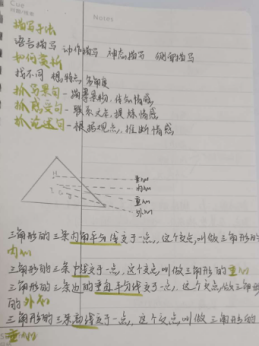 Notes
描写手法
语言描写 动作描写 神态描写 侧面描写
如何赏析
抓写景句-描摹景物,体会情感,
抓感文句-联系上下文,提炼情感
抓论述句-根据观点,推断情感
重心
内心
垂心
外心
三角形的三条内角平分线交于一点,这个交点叫做三角形的
内心
三角形的三条中线交于一点,这个交点叫做三角形的重心
三角形的三条边的垂直平分线交于一点,这个交点叫做三角形
的外心
三角形的三条高线交于一点,这个交点,叫做三角形的
垂心